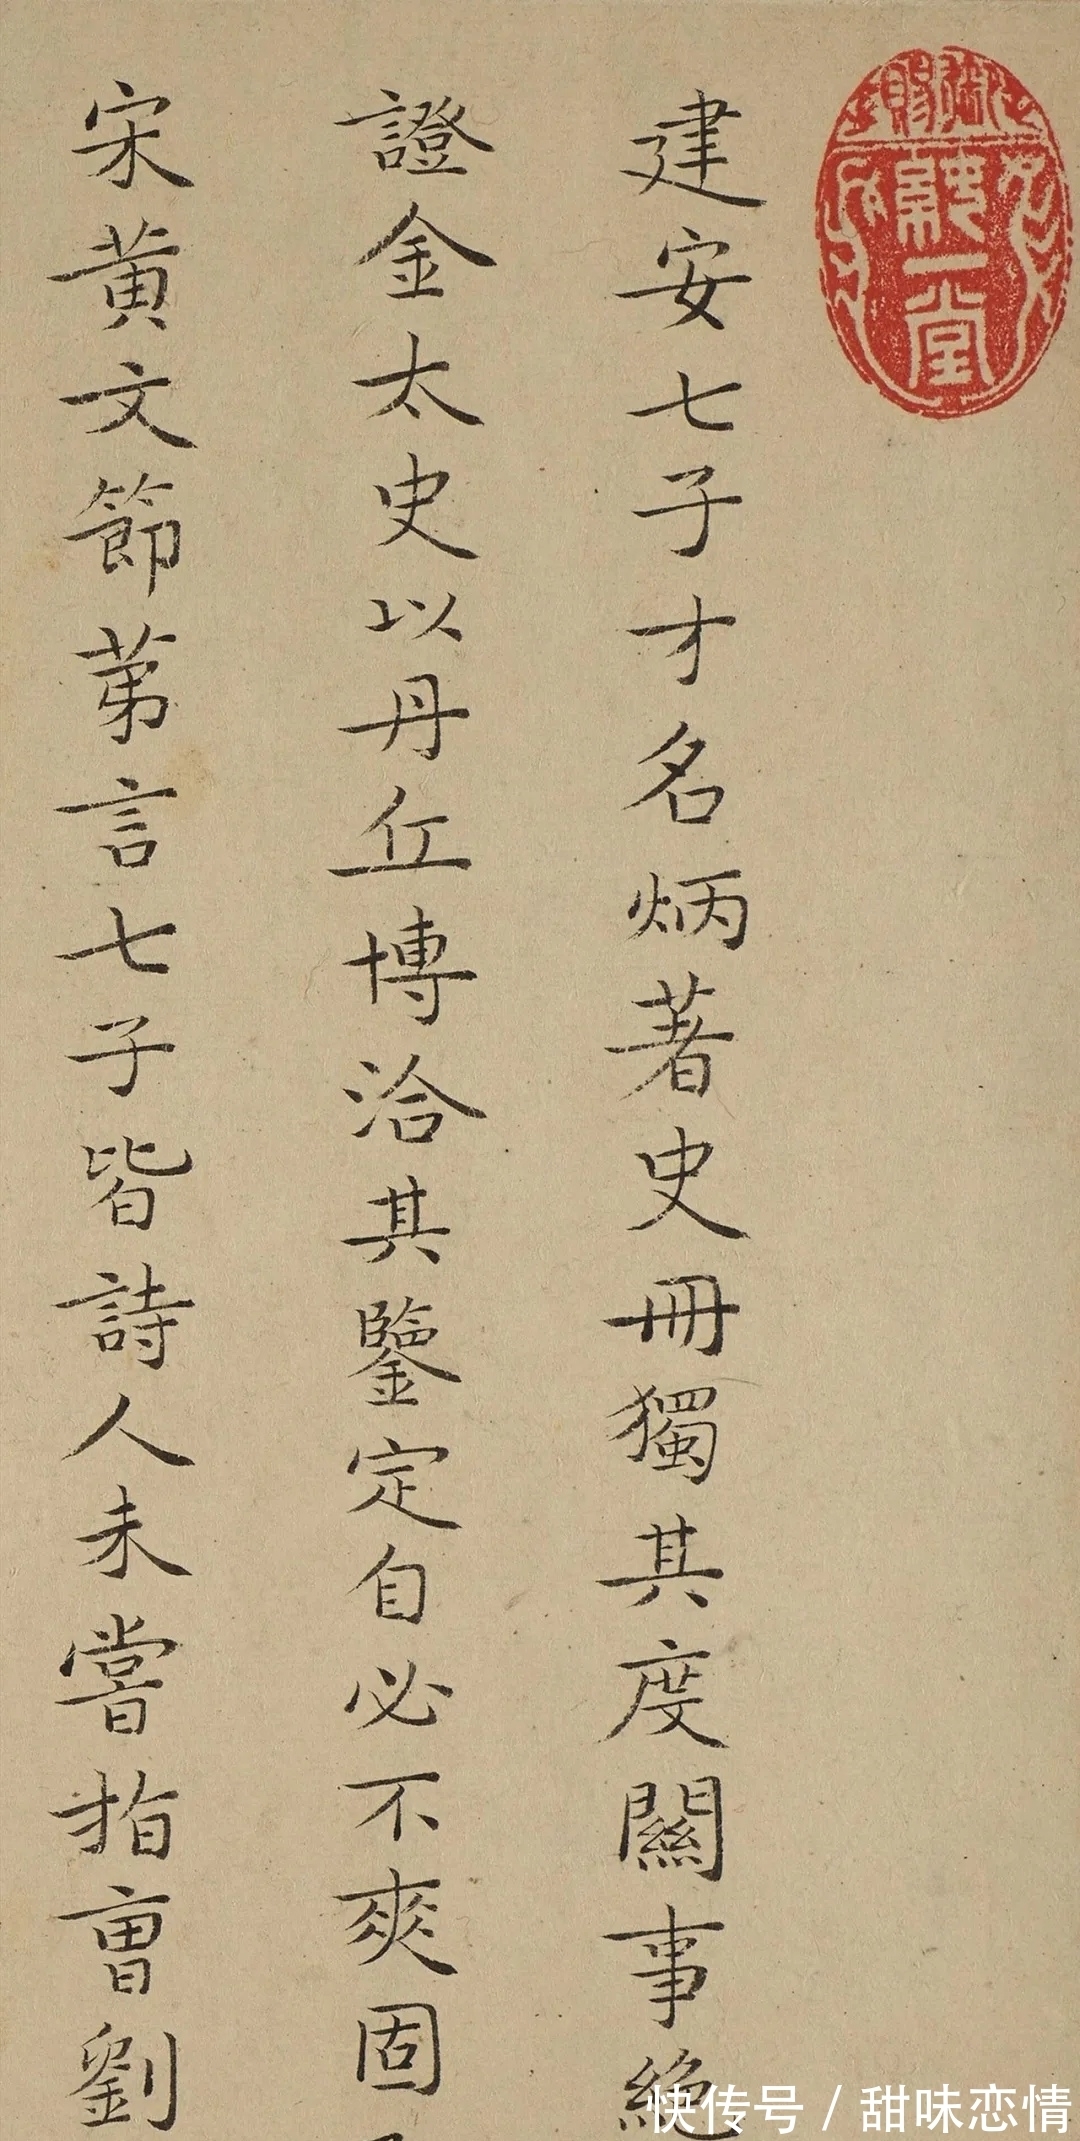 建安七子才名炳著史冊獨其度關事絕
證金太史以丹丘博洽其鑒定自必不爽固
宋黃文節苐言七子皆詩人未嘗指曹劉
御賜
融一堂
快传号 / 甜味恋情